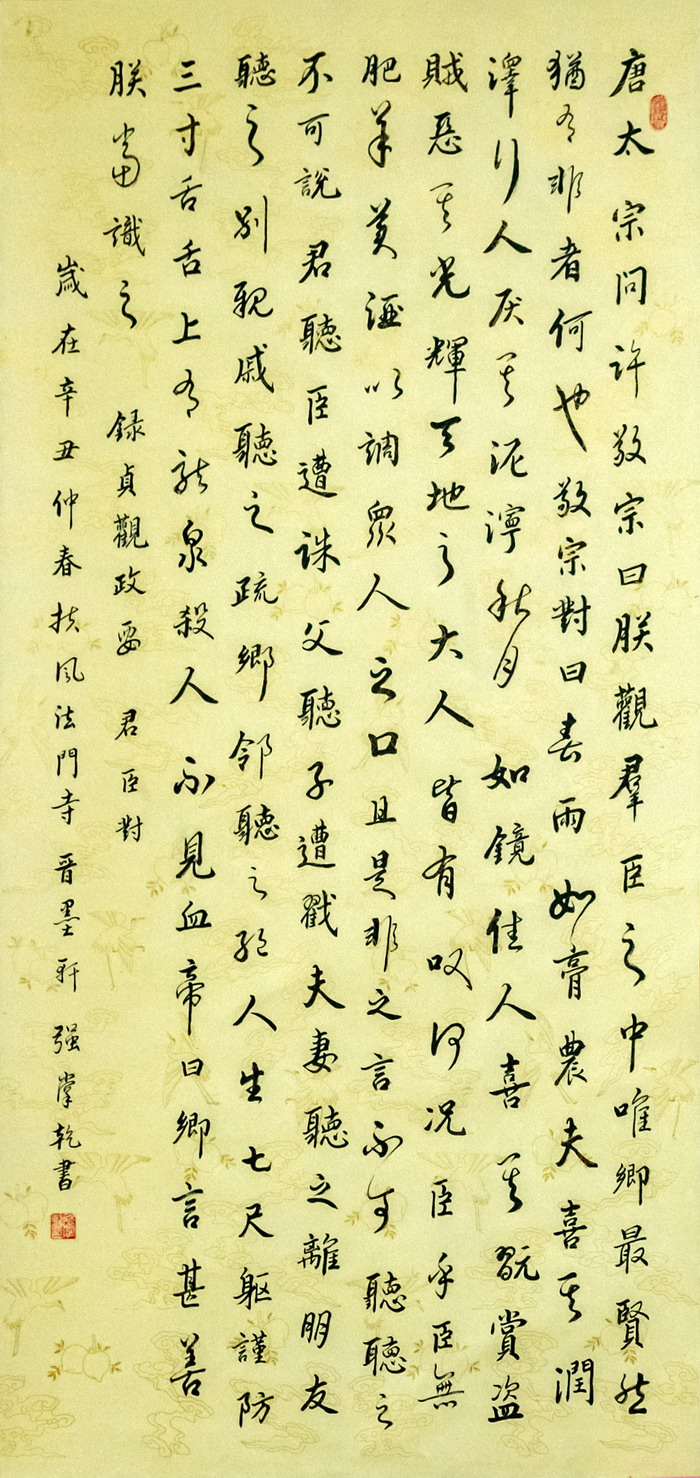 唐太宗問許敬宗曰朕觀羣臣之中唯卿最賢然
猶有非者何也敬宗對曰春雨如膏農夫喜其潤
澤行人厌其泥濘秋月如鏡佳人喜其翫賞盗
賊惡其光輝天地之大人皆有叹何况臣乎臣無
肥羊美酒以調眾人之口且是非之言不可聽聽之
不可說君聽臣遭誅父聽子遭戮夫妻聽之離朋友
聽之别親戚聽之疏鄉邻聽之絕人生七尺躯謹防
三寸舌舌上有龍泉殺人不見血帝曰卿言甚善
朕當識之 録貞觀政要 君臣對
歲在辛丑仲春扶風法門寺晋墨軒 强掌乾書